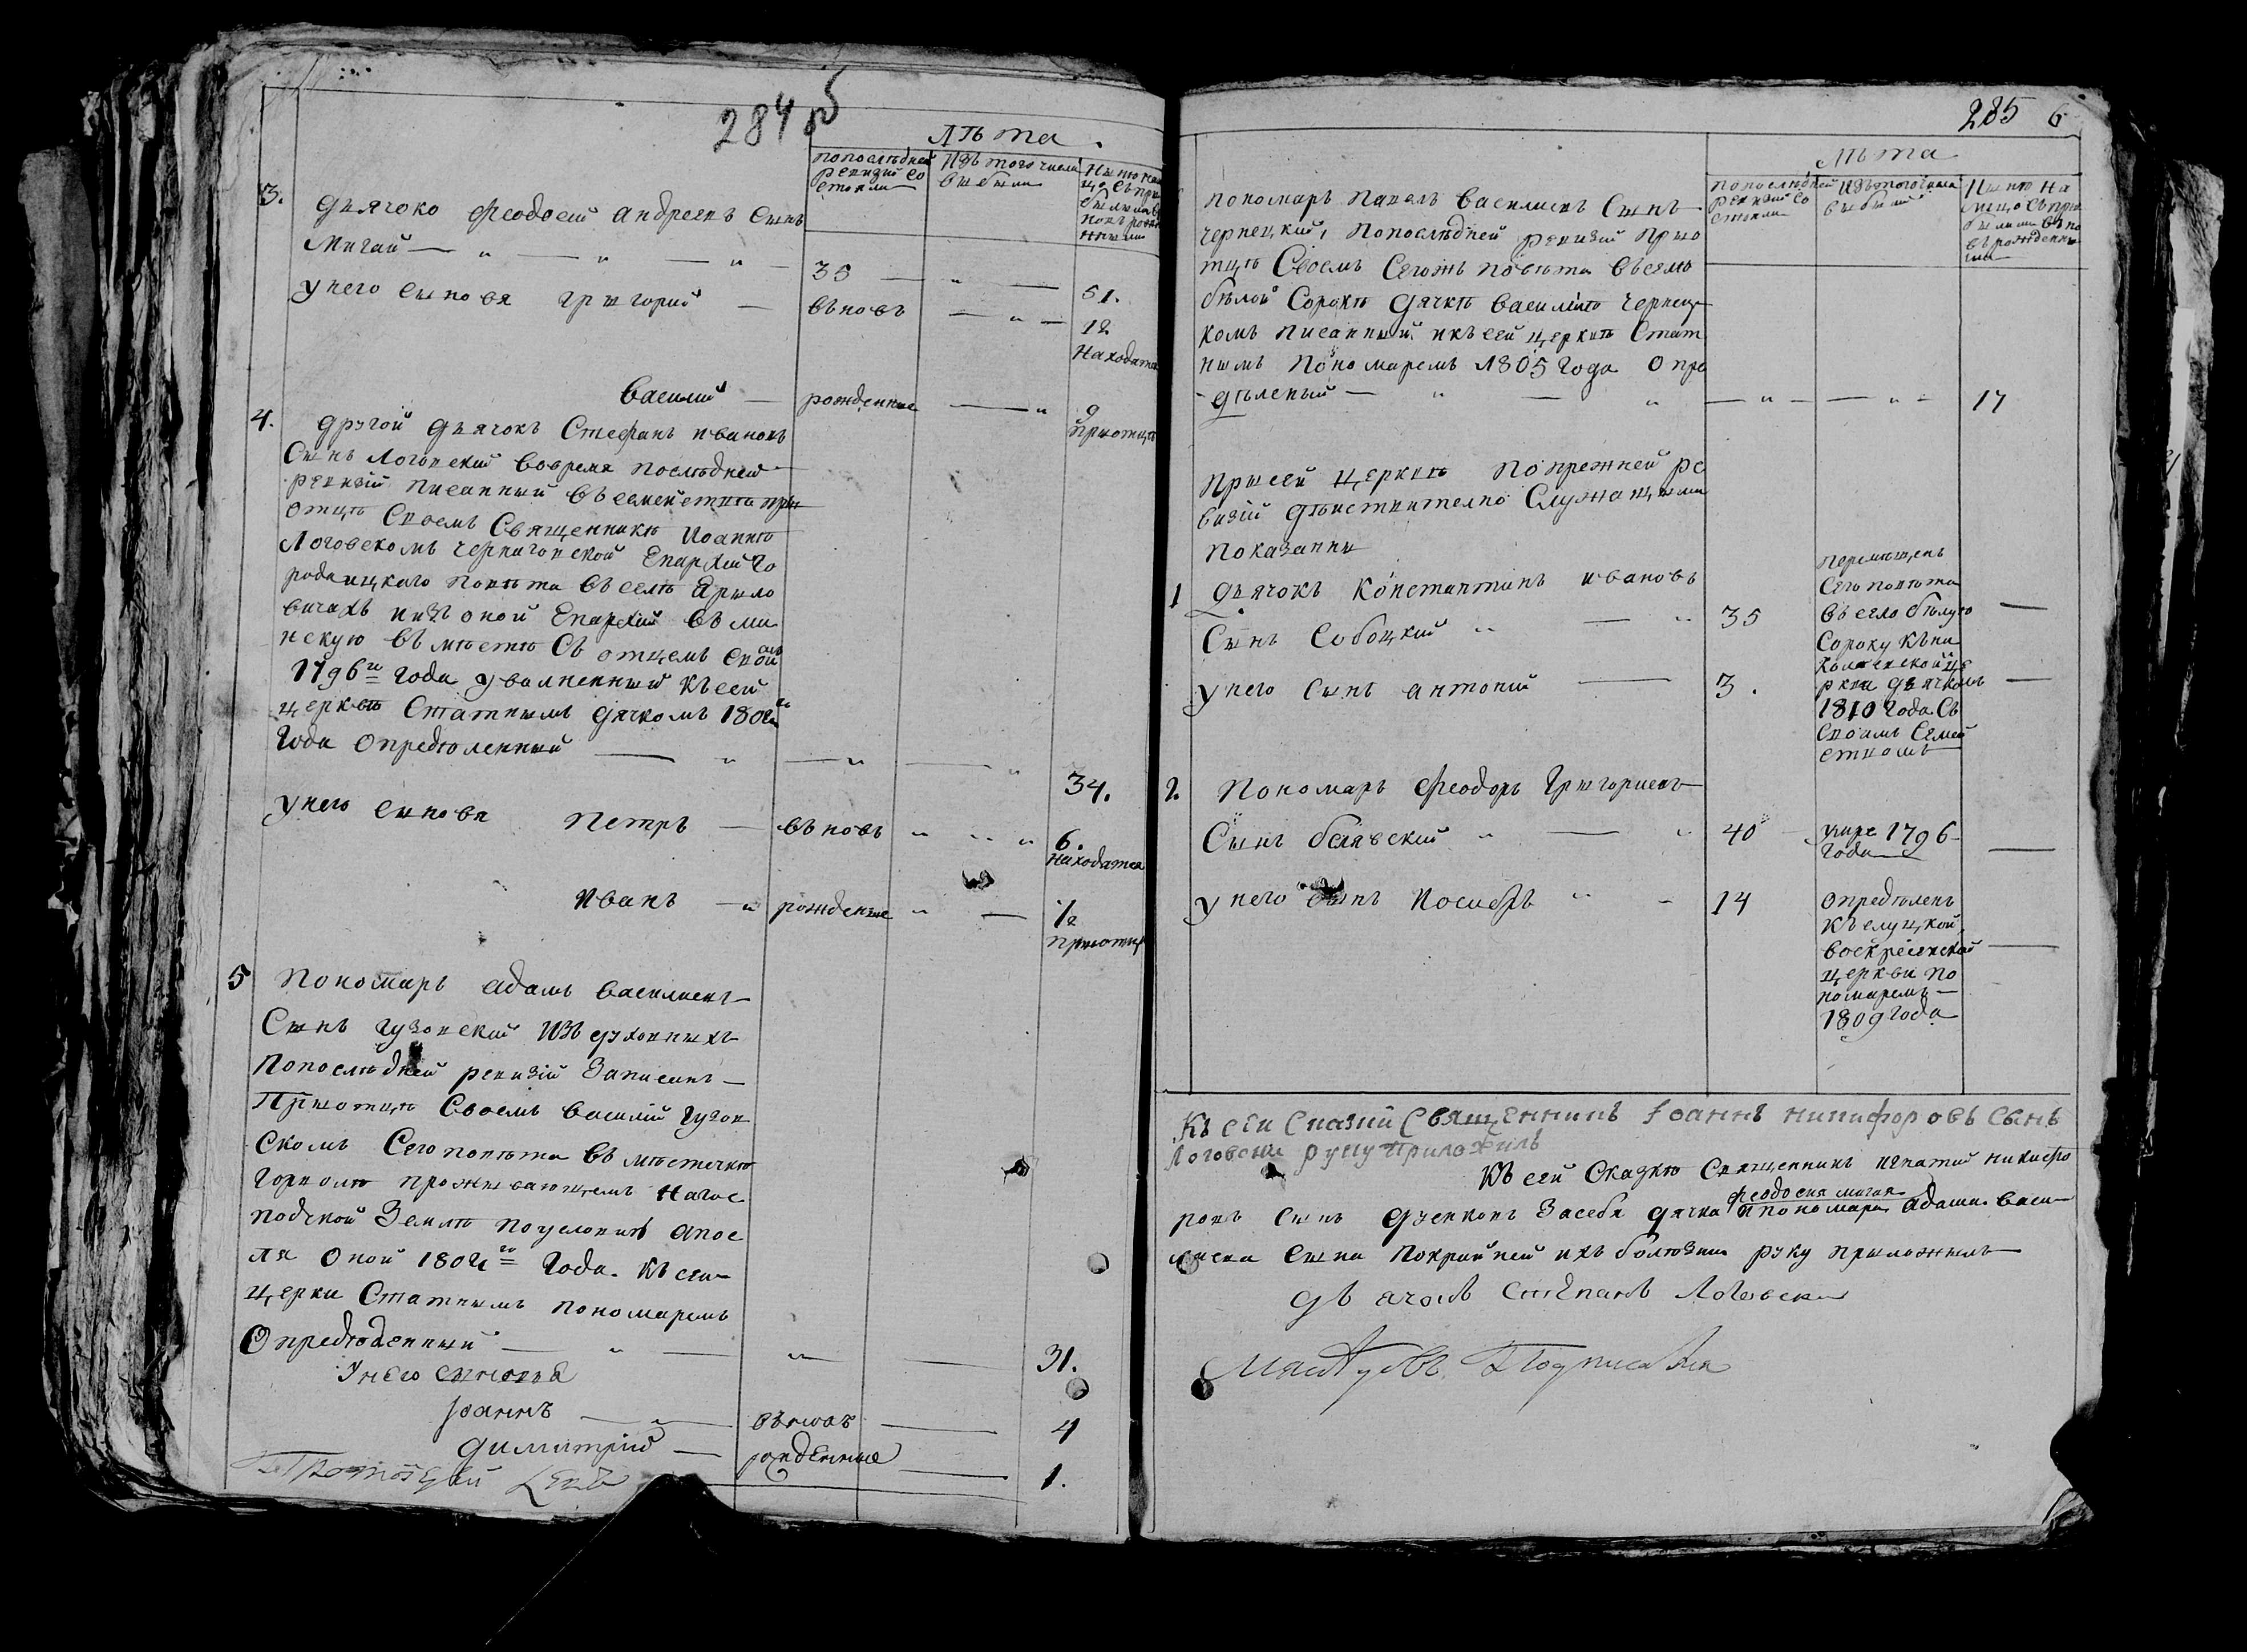 284
Лѣта.
Попослѣдней ревизіи состояли
Изъ того числа выбыли
3. Дьячокъ Феодосій Андреевъ Сынъ
Мигай — " — " — " — 35 — " — 51.
У него сыновя Григорий — въновь — " — 12
Находятся
Василий — рожденные — " 9
Приотцѣ
4. Другой дьячокъ Стефанъ Ивановъ
Сынъ Логовский вовремя последней
ревизій писанный въ семействѣ при
отцѣ Своемъ Священникѣ Иоаннѣ
Логовскомъ Черниговской Епархии Го
родницкаго повѣта въ селѣ Ярыло
вичахъ изъ оной Епархии въ Ми
нскую вмѣстѣ съ отцемъ своимъ
1796го года уволненный ксей
церквѣ Статнымъ дячкомъ 1802го
Года определенный — " — " — " 34.
У него сыновя Петръ — въновь " " " 6.
Находятся
Иванъ — " рожденные " — 1/2
Приотцѣ
5 Пономаръ Адамъ Василиевъ
Сынъ Гузовский Изъ духовныхъ
Попослѣдней ревизій Записанъ —
Приотцѣ Своемъ Василий Гузов
скомъ Сего повѣта въ мѣстечкѣ
Горволѣ проживающемъ Нагос
подской Землѣ поусловию апос
ля оной 1802го Года. Ксей
церкви Статнымъ пономаремъ
Определенный — " — " — 31.
У него сыновья
Іоаннъ — " — вьновь — 4
Димитрий — рожденные — 1.
285 6
Лѣта
Попослѣдней ревизій состояли
Изъ того числа выбыли
Ныне на лицо съпри былыми въно въ рожденны ми
Пономаръ Павелъ Василиевъ Сынъ
Чернецкий, Попослѣдней ревизій при о
тцѣ Своемъ Сегожъ повѣта въ селѣ
бѣлой Сорокѣ Дячкѣ Василиѣ Чернец
комъ писанный. иксей церквѣ Стат
нымъ Пономаремъ 1805 Года Опре
дѣленый — " — " — " — " — 17
При сей церквѣ по прежней ре
визій дѣйствително Служащими
показанны
1 Дьячокъ Константинъ Ивановъ
Сынъ Соботцкий " — " 35
У него Сынъ Антоний — 3.
Перемѣщенъ
Сего повѣта
въ село бѣлую
Сороку къ ни
колаевской це
ркви дьячкомъ
1810 Года Съ
Своимъ Семей
ствомъ
2. Пономаръ Феодоръ Григориевъ
Сынъ " — " 40 — умре 1796
Года —
У него сынъ Иосифъ " — 14
Определенъ
къ елуцкой
воскресенской
церкви по
номаремъ —
1809 Года
Къ сей Сказки Священникъ Іоаннъ Никифоровъ Сынъ
Логовский руку приложилъ
Къ сей Сказкѣ Священникъ Игнатий Никифо
ровъ Сынъ засебя дячка Феодосия Мигая и пономаря Адама Васи
лиева Сына руку приложилъ
Дьячокъ Степанъ Логовски